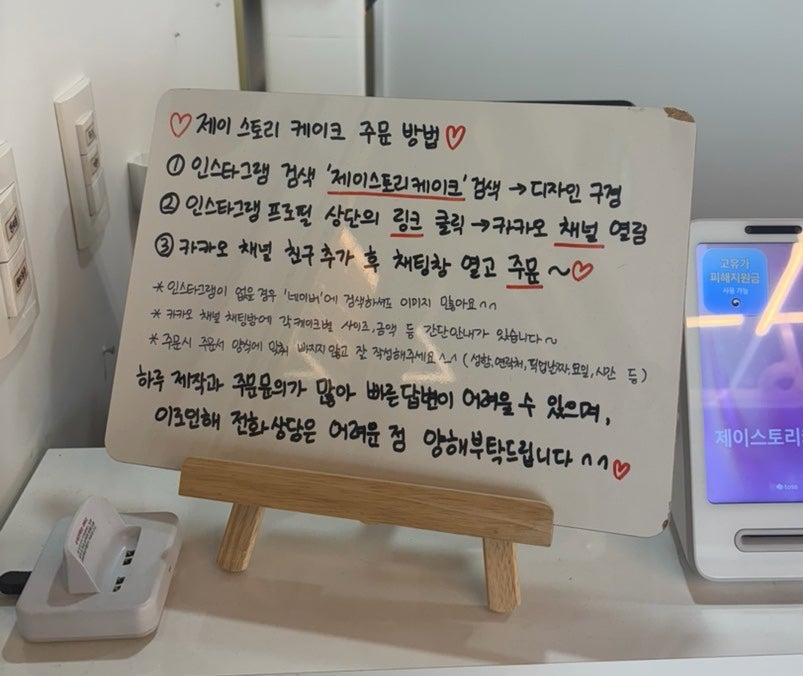 ♡제이스토리 케이크 주문 방법♡
① 인스타그램 검색 '제이스토리케이크' 검색 → 디자인 구경
② 인스타그램 프로필 상단의 링크 클릭 → 카카오 채널 열림
③ 카카오 채널 친구 추가 후 채팅창 열고 주문~♡
* 인스타그램이 없을 경우 '네이버'에 검색하셔도 이미지 많아요^^
* 카카오 채널 채팅방에 각 케이크별 사이즈, 금액 등 간단안내가 있습니다~
* 주문시 주문서 양식에 맞춰 빠지지 않고 잘 작성해주세요^^ (성함, 연락처, 픽업날짜, 요일, 시간 등)
하루 제작과 주문문의가 많아 빠른답변이 어려울 수 있으며,
이로인해 전화상담은 어려운 점 양해부탁드립니다^^♡
고유가
피해지원금
사용 가능
제이스토리
toss